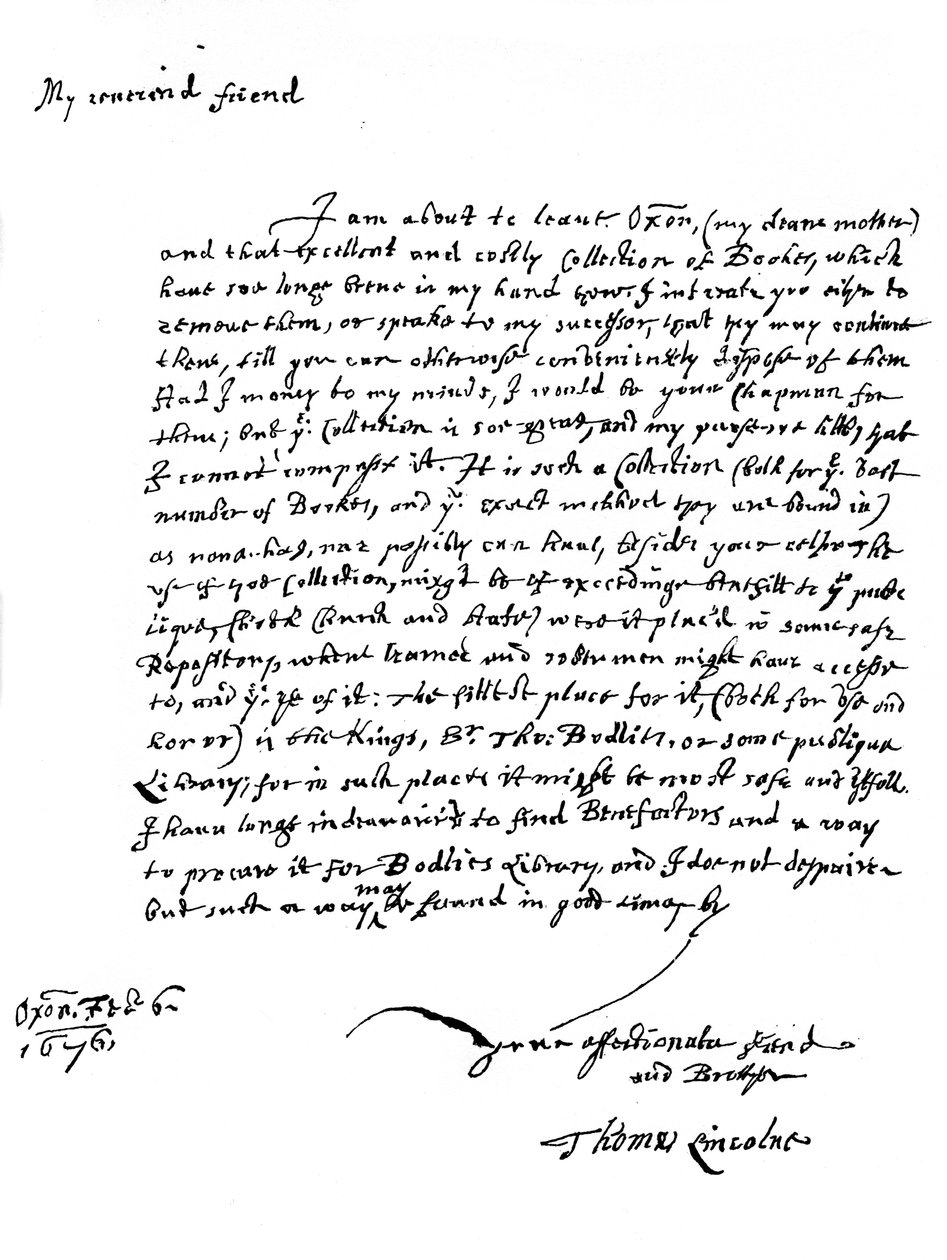 My reverind friend
I am about to leaue Oxōn, (my deare mother)
and that excellent and costly Collection of Bookes, which
haue soe longe beene in my hand now. I intreate you either to
remoue them, or speake to my successor, that they may continue
there, till you can otherwise conveniently dispose of them
Had I money to my minde, I would be your Chapman for
them; but yͤ. Collection is soe great, and my purse soe little, that
I cannot compasse it. It is such a Collection (both for yͤ. vast
number of Bookes, and yͤ. exact method they are bound in)
as none has, nor possibly can haue, besides your selfe. The
vse of that Collection, might be of exceedinge benefitt to yͤ pub-
lique, (both Church and State) were it plac'd in some safe
Repository, where learned and sober men might haue accesse
to, and yͤ. vse of it: The fittest place for it, (both for vse and
honor) is the Kings, Sʳ. Tho: Bodlies, or some publique
Library; for in such places it might be most safe and vsefull.
I haue longe indeauor'd to find Benefactors and a way
to procure it for Bodlies Library, and I doe not despaire
but such a way may be found in good time by
Oxōn. Feb 6.
1676.
Your affectionate friend
and Brother
Thomas Lincolne